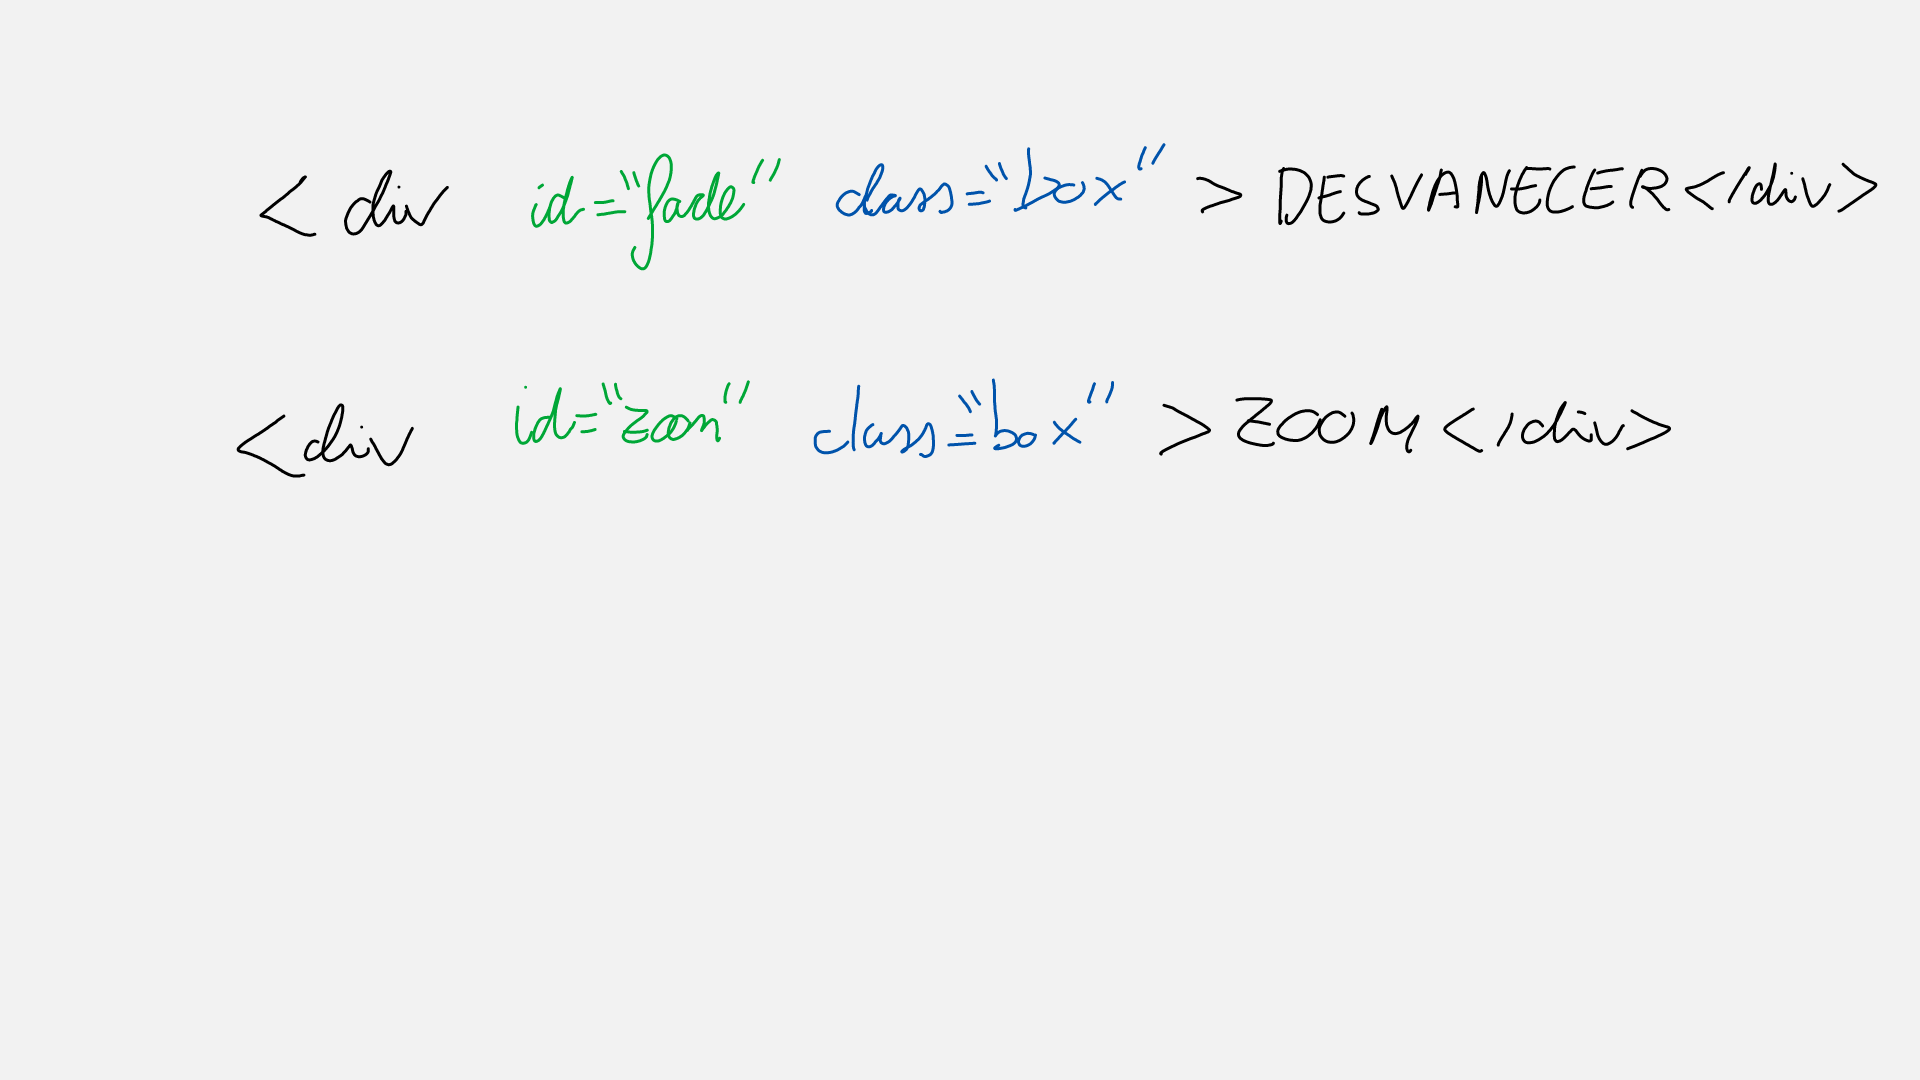 <div id="fade" class="box" > DESVANECER</div>
<div id="zoom" class="box" > ZOOM</div>